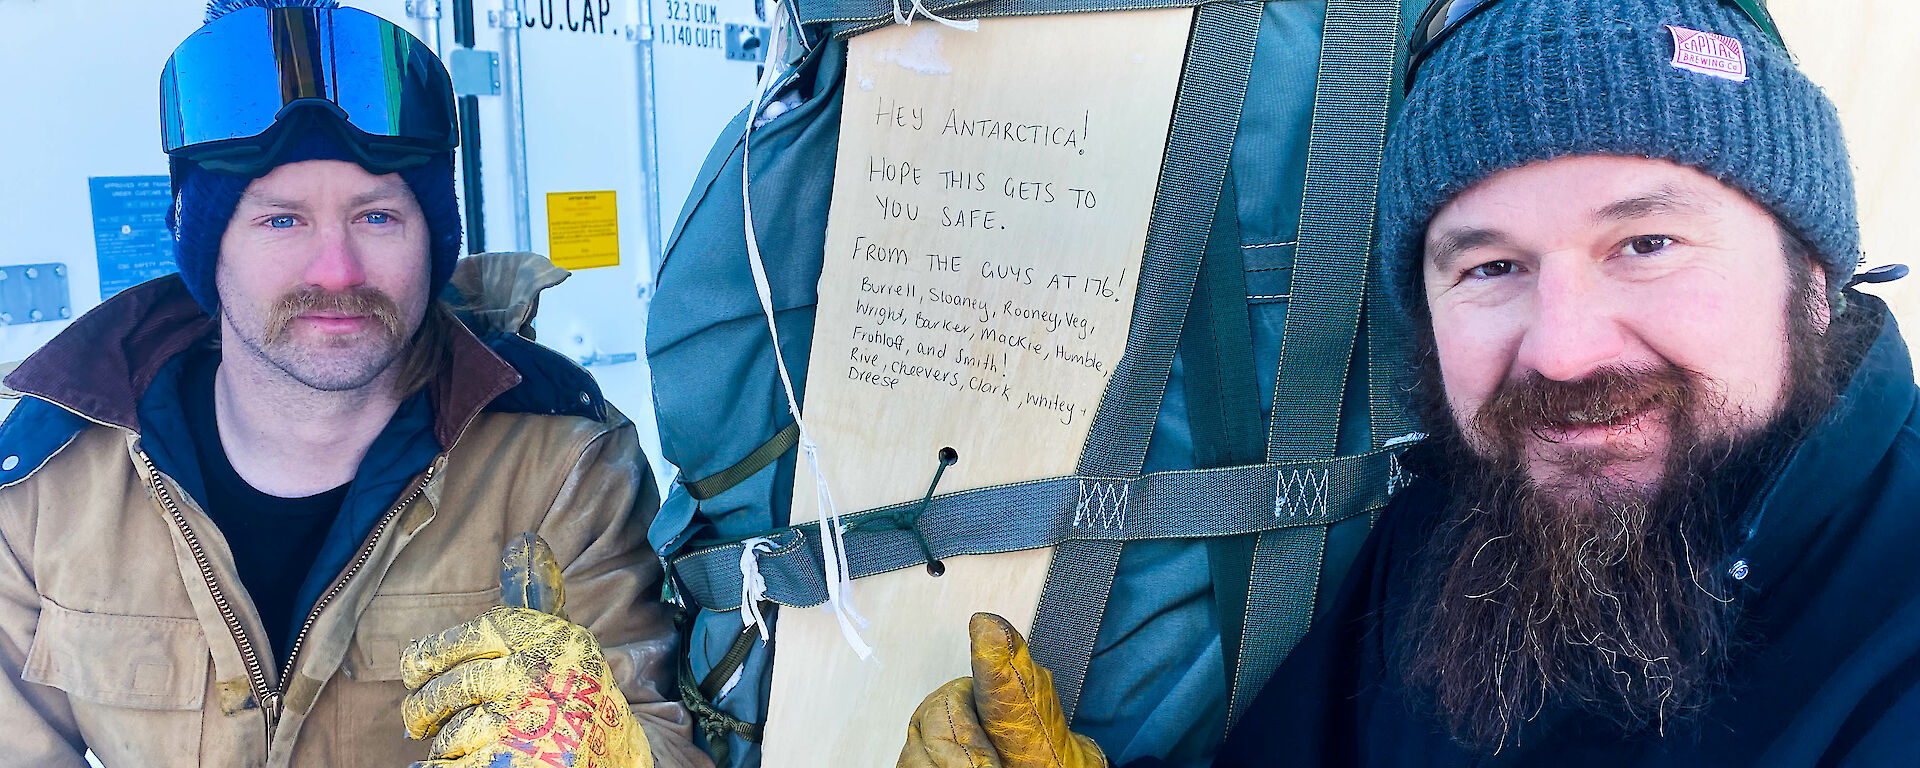 CU.CAP.
32.3 CU.M.
1,140 CU.FT.
CAPITAL
BREWING CO
HEY ANTARCTICA!
HOPE THIS GETS TO
YOU SAFE.
FROM THE GUYS AT 176!
Burrell, Sloaney, Rooney, Veg,
Wright, Barker, Mackie, Humble,
Frohloff, and Smith!
Rive, Cheevers, Clark, Whitey +
Dreese
APPROVED FOR
UNDER CUSTOMS
CSC SAFETY